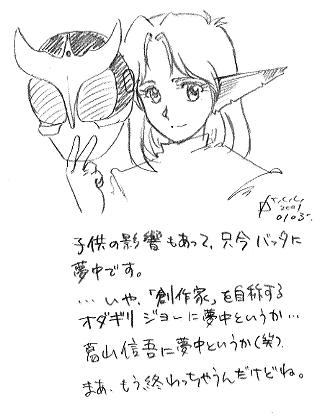 2001
01.03.
子供の影響もあって、只今バッタに
夢中です。
…いや、「創作家」を自称する
オダギリジョーに夢中というか…
葛山信吾に夢中というか(笑)。
まあ、もう終わっちゃうんだけどね。